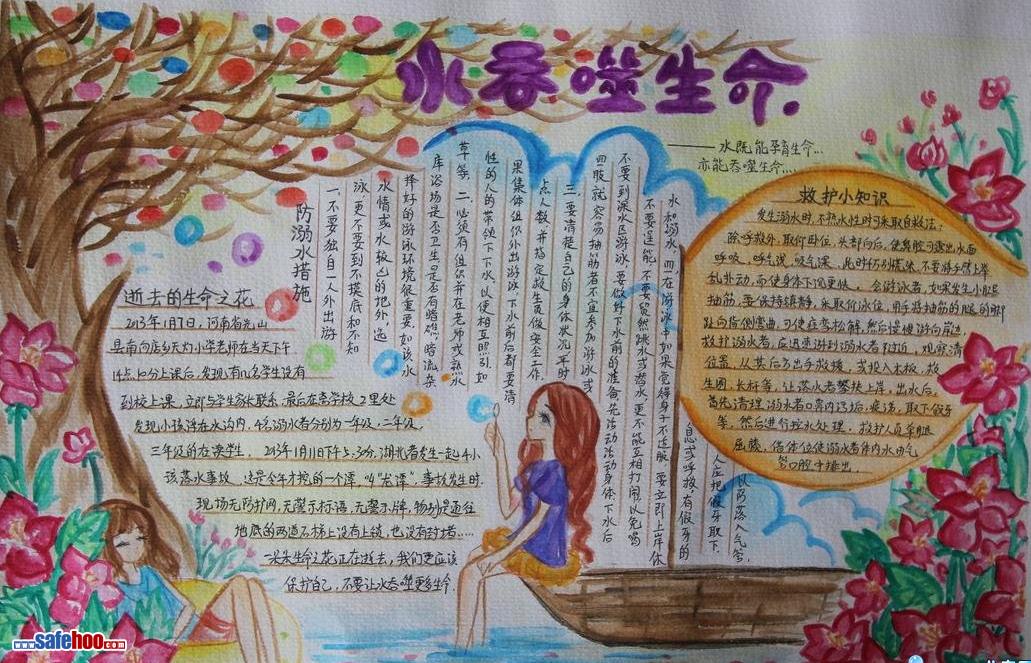 水吞噬生命.
——水既能孕育生命…
亦能吞噬生命…
防溺水措施
一、不要独自一人外出游
泳,更不要到不摸底和不知
水情或水较凶的地外选
择好的游泳环境很重要,如该水
库浴场是否卫生,是否有暗礁,暗流,杂
草等。二、必须有组织并在老师或熟水
性的人的带领下下水,以便相互照引.如
果集体组织外出游泳,下水前后都要清
点人数,并指定救生员做安全工作。
三、要清楚自己的身体状况,平时
四肢就容易抽筋者不宜参加游泳或
不要到深水区游泳.要做好下水前的准备,先活动活动身体,下水后
不要逞能,不要贸然跳水或潜水,更不能互相打闹,以免喝
水和溺水.四、在游泳中如果觉得身子不舒服,要立即上岸休
息或呼救,有假牙的
人应把假牙取下,
以防落入气管
逝去的生命之花
2013年1月7日,河南省光山
县南向店乡天灯小学老师在当天下午
14点10分上课后,发现有几名学生没有
到校上课,立即与学生家长联系,最后在离学校2里处
发现小孩浮在水沟内,4名溺水者分别为一年级,二年级,
三年级的在读学生,2013年1月11日下午3.3分,湖北省发生一起4小
孩落水事故
现场无防护网,无警示标语,无警示牌,特别是通往
地底的两道石梯上没有上锁,也没有封堵…
一朵朵生命之花正在逝去,我们更应该
保护自己,不要让水吞噬更多生命.
救护小知识
发生溺水时,不熟水性时可采取自救法:
除呼救外,取仰卧位,头部向后,使鼻腔可露出水面
呼吸,呼气浅,吸气深,此时切勿慌张,不要将手臂上举
乱扑动,而使身体下沉更快。会游泳者,如果发生小腿
抽筋,要保持镇静,采取仰泳位,用手将抽筋的腿的脚
趾向背侧弯曲,可使痉挛松解,然后慢慢游向岸边,
救护溺水者,应迅速游到溺水者附近,观察清
位置,从其后方出手救援,或投入木板,救
生圈,长杆等,让落水者攀扶上岸,出水后,
首先清理溺水者口鼻内污垢,痰涕,取下假牙
等,然后进行控水处理,救护人员单腿
屈膝,借体位使溺水者体内水由气
管口腔中排出.
www.safehoo.com